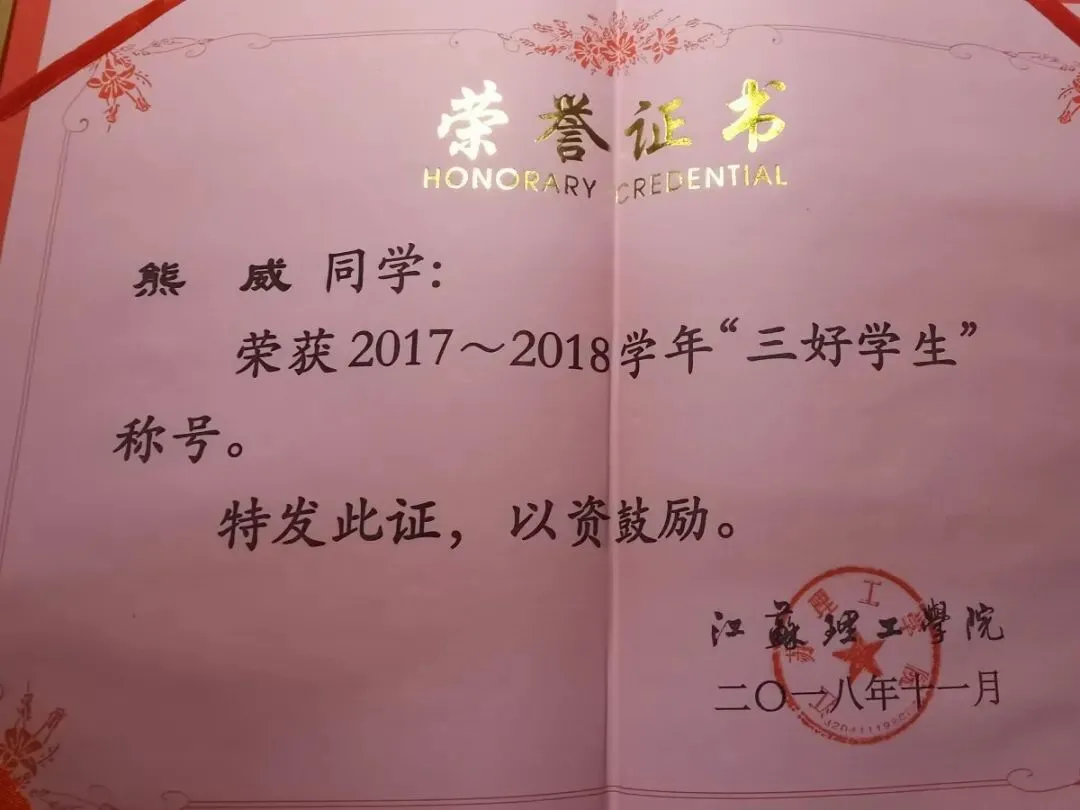 荣誉证书
HONORARY CREDENTIAL
熊 威 同学:
荣获2017～2018学年“三好学生”
称号。
特发此证，以资鼓励。
江蘇理工學院
二〇一八年十一月